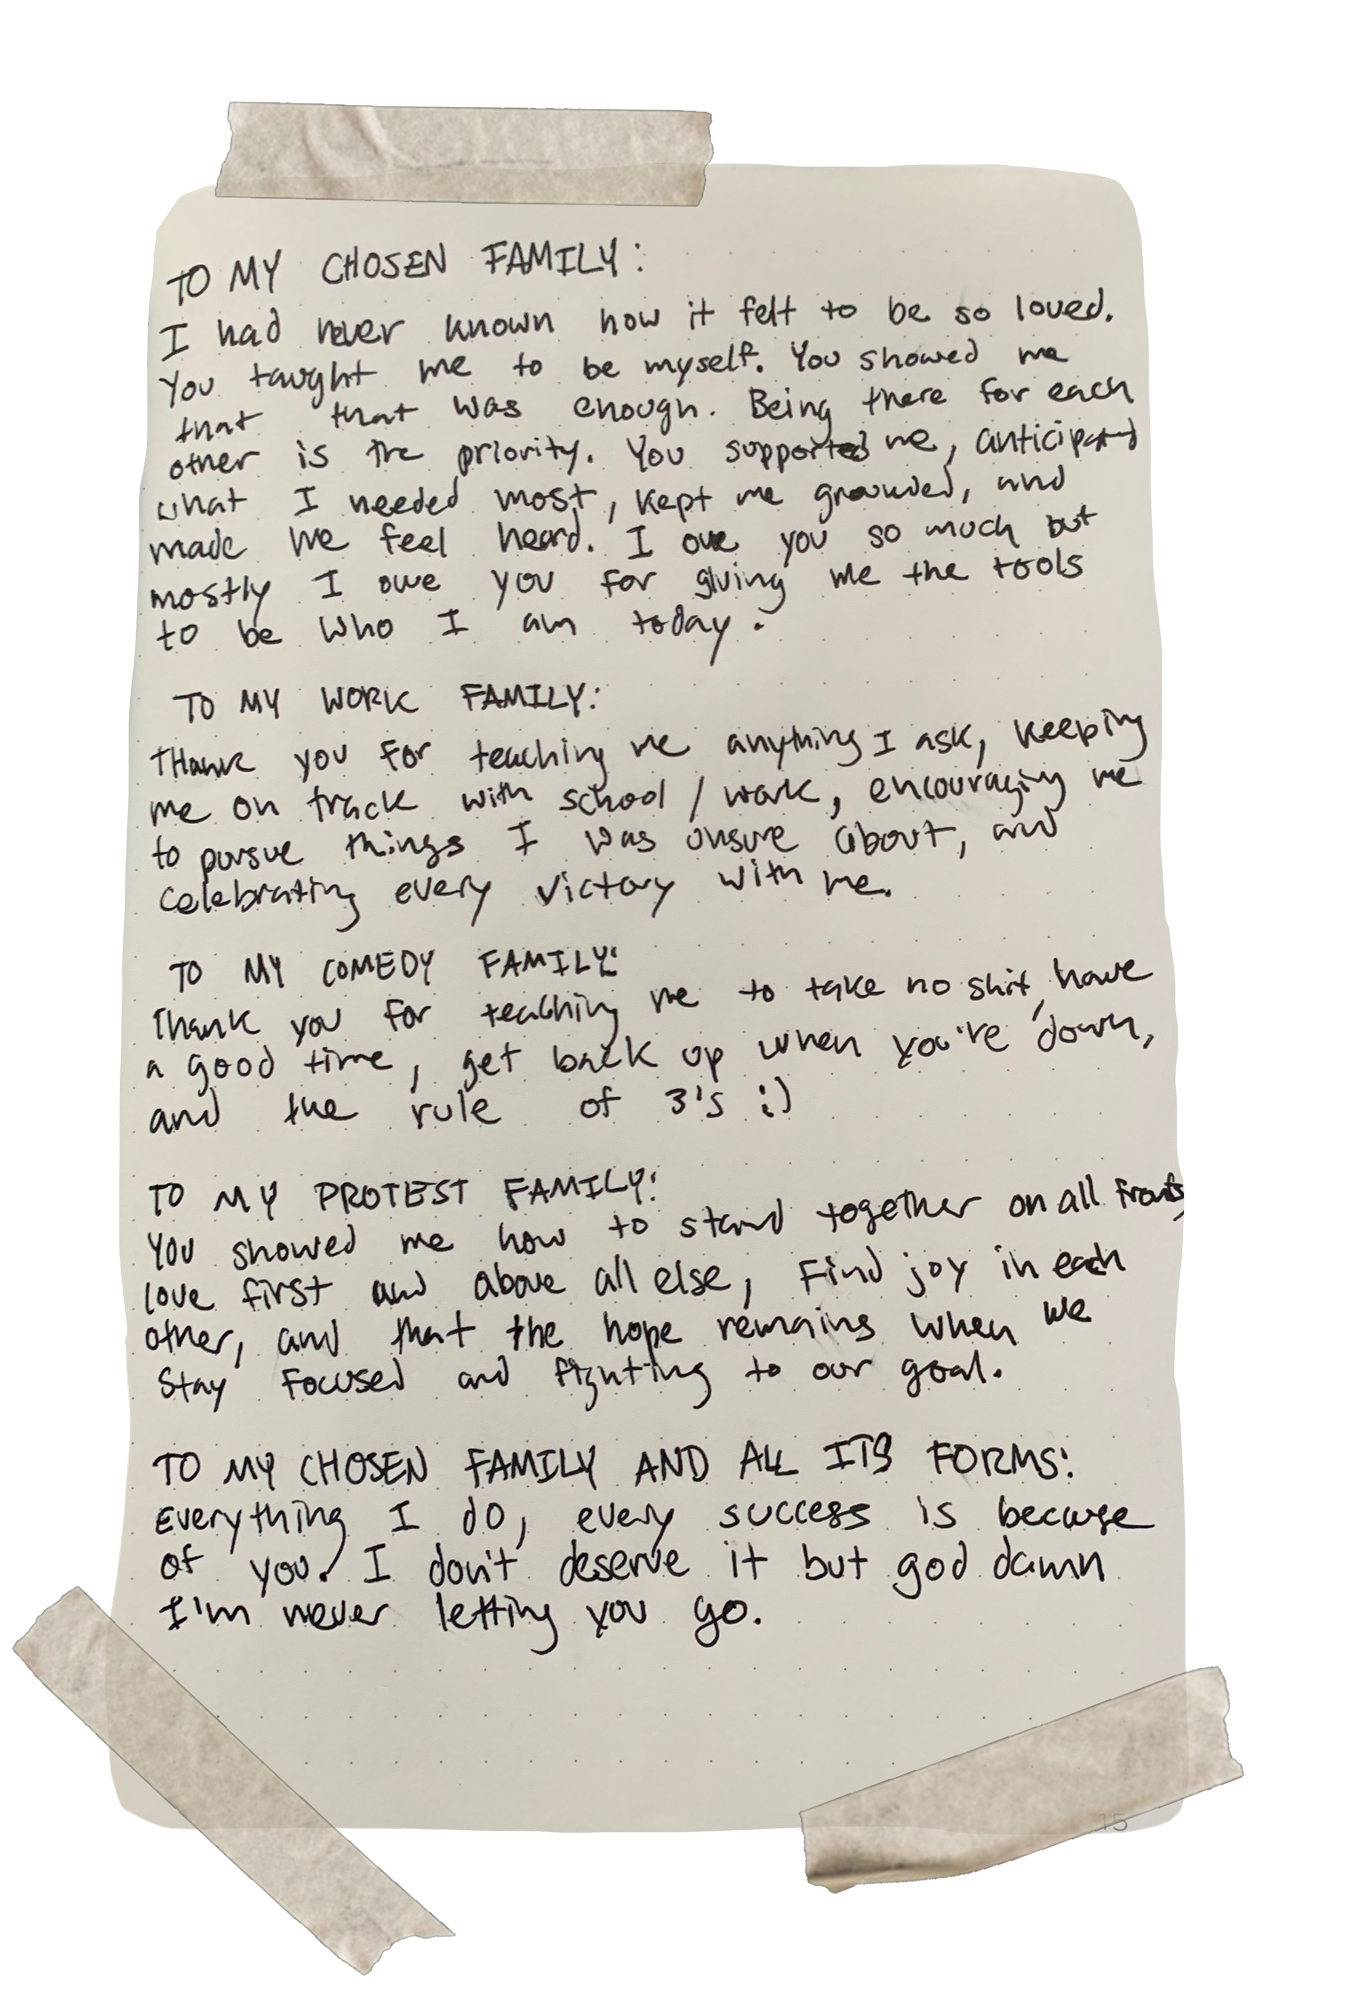 TO MY CHOSEN FAMILY:
I had never known how it felt to be so loved.
You taught me to be myself. You showed me
that that was enough. Being there for each
other is the priority. You supported me, anticipated
what I needed most, kept me grounded, and
made me feel heard. I owe you so much but
mostly I owe you for giving me the tools
to be who I am today.
TO MY WORK FAMILY:
THank you for teaching me anything I ask, keeping
me on track with school / work, encouraging me
to pursue things I was unsure about, and
celebrating every victory with me.
TO MY COMEDY FAMILY:
Thank you for teaching me to take no shit, have
a good time, get back up when you're down,
and the rule of 3's :)
TO MY PROTEST FAMILY:
You showed me how to stand together on all fronts,
love first and above all else, find joy in each
other, and that the hope remains when we
stay focused and fighting to our goal.
TO MY CHOSEN FAMILY AND ALL ITS FORMS:
Everything I do, every success is because
of you. I don't deserve it but god damn
I'm never letting you go.
15